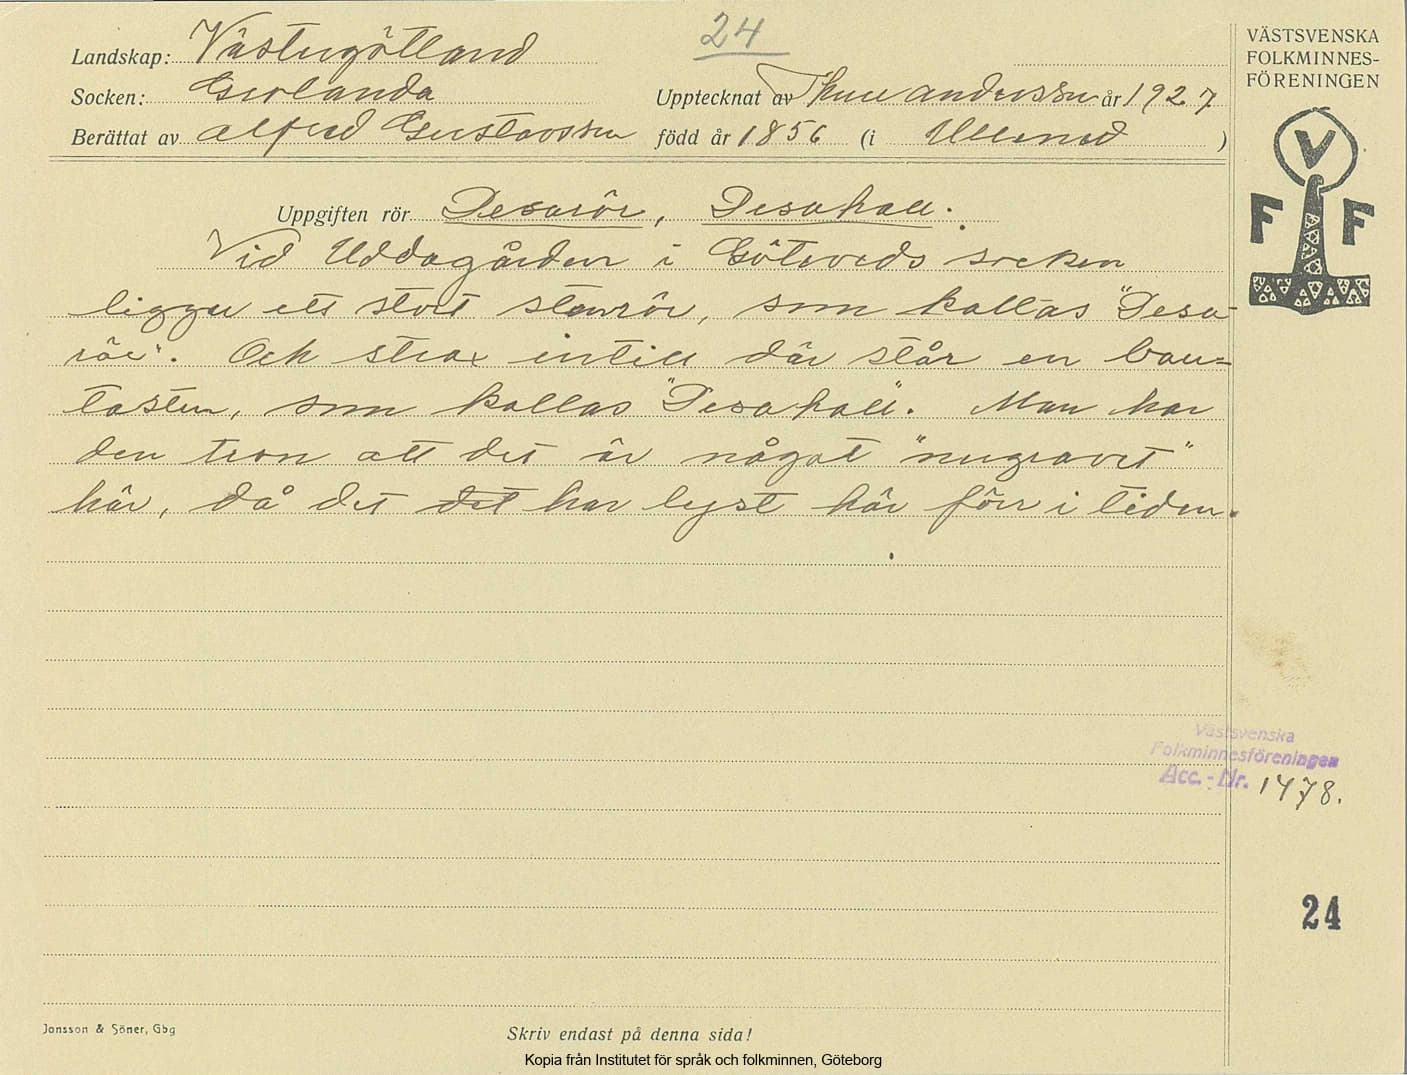 24
Landskap: Västergötland
Socken: Grolanda
Upptecknat av Thure Andersson år 1927
Berättat av Alfred Gustavsson född år 1856 (i Ullened )
VÄSTSVENSKA
FOLKMINNES-
FÖRENINGEN
V
F F
Uppgiften rör Pesarör, Pesahall.
Vid Uddagården i Göteveds socken
ligger ett stort stenrör, som kallas "Pesa-
rör". Och strax intill där står en bau=
tasten, som kallas "Pesahall". Man har
den tron att det är något "nergravet"
här, då det det har lyst här förr i tiden.
Västsvenska
Folkminnesföreningen
Acc. - Nr. 1478.
24
Jonsson & Söner, Gbg
Skriv endast på denna sida!
Kopia från Institutet för språk och folkminnen, Göteborg